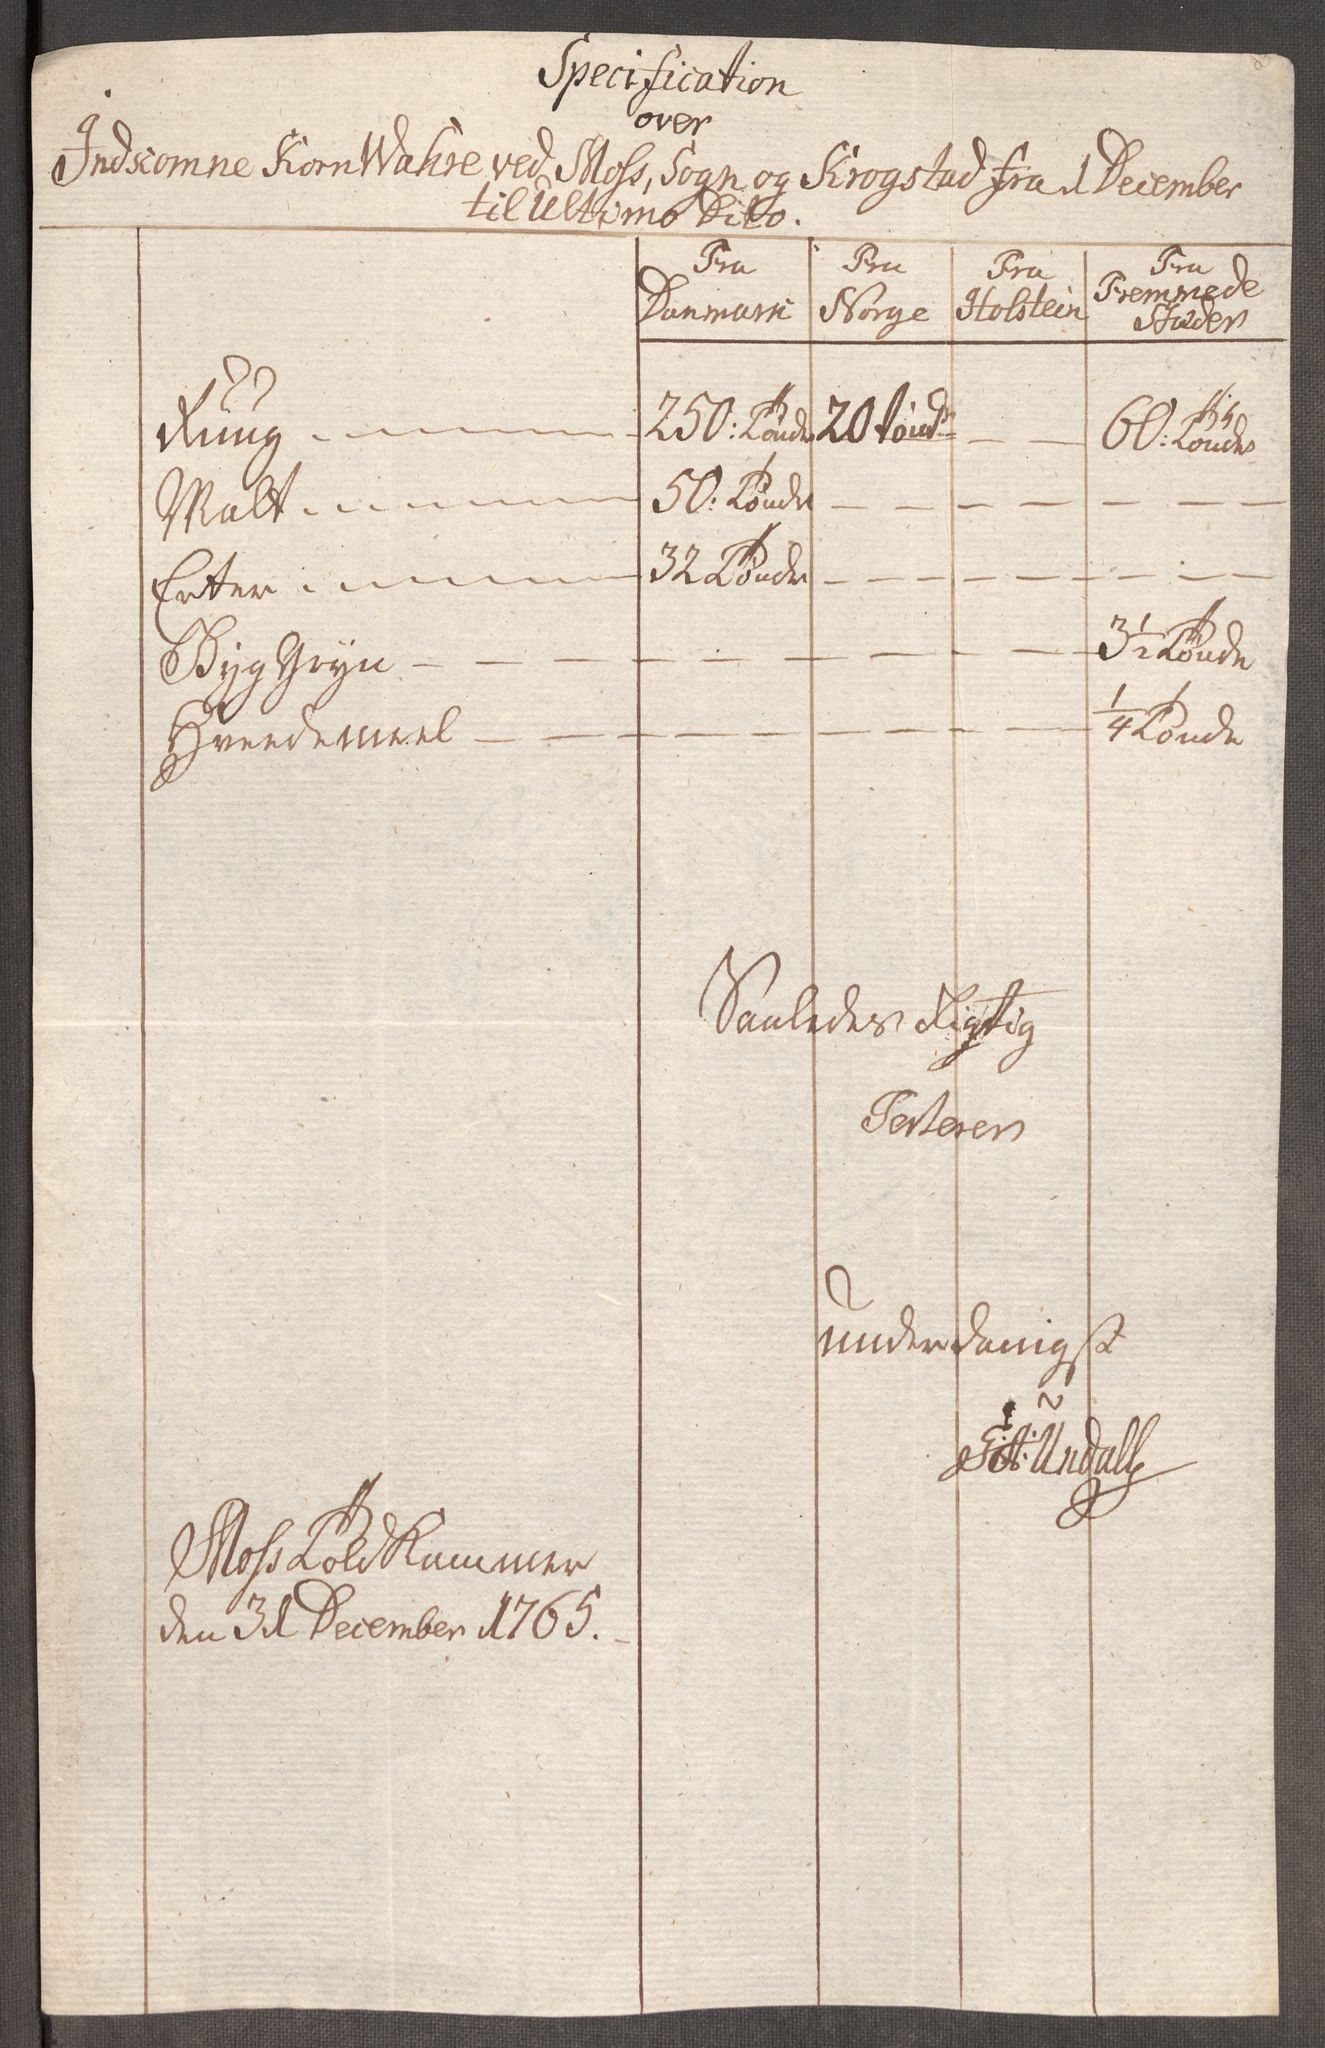 Specification
over
Indkomne Korn Wahre ved Moss, Sogn og Krogstad fra 1 December
til Ultimo Dito.
Fra Danmark Fra Norge Fra Holstein Fra Fremmede Stæder
Rung 250: Tønder 20 tønd - - 60: Tønder
Malt 50: Tønder - - - - - -
Erter 32 Tønder - - - - - -
Byg Gryn - - - - - - 3 1/2 Tønde
Hveedemeel - - - - - - 1/4 Tønde
Saaledes Rigtig
Testerer
underdanigst
Undall
Moss Told Kammer
den 31 December 1765.